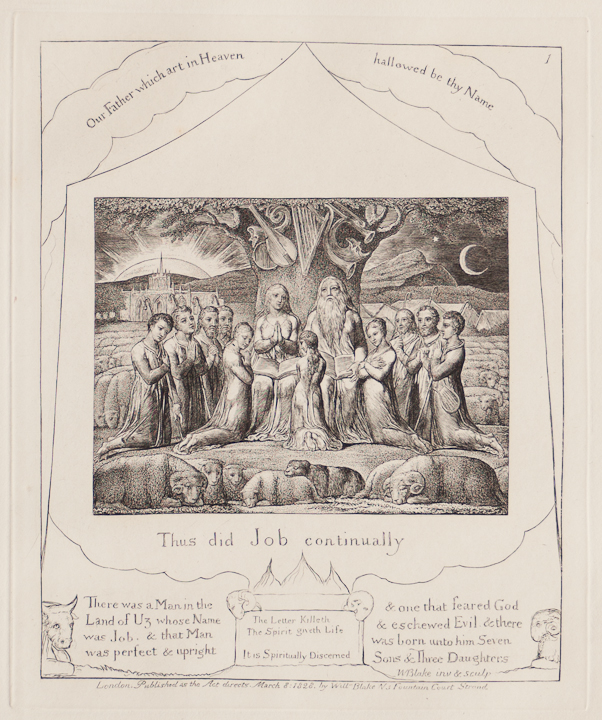 Our Father which art in Heaven
hallowed be thy Name
1
Thus did Job continually
There was a Man in the
Land of Uz whose Name
was Job. & that Man
was perfect & upright
The Letter Killeth
The Spirit giveth Life
It is Spiritually Discerned
& one that feared God
& eschewed Evil & there
was born unto him Seven
Sons & Three Daughters
WBlake inv & sculp
London. Published as the Act directs March 8: 1828. by Willm Blake N3 Fountain Court Strand